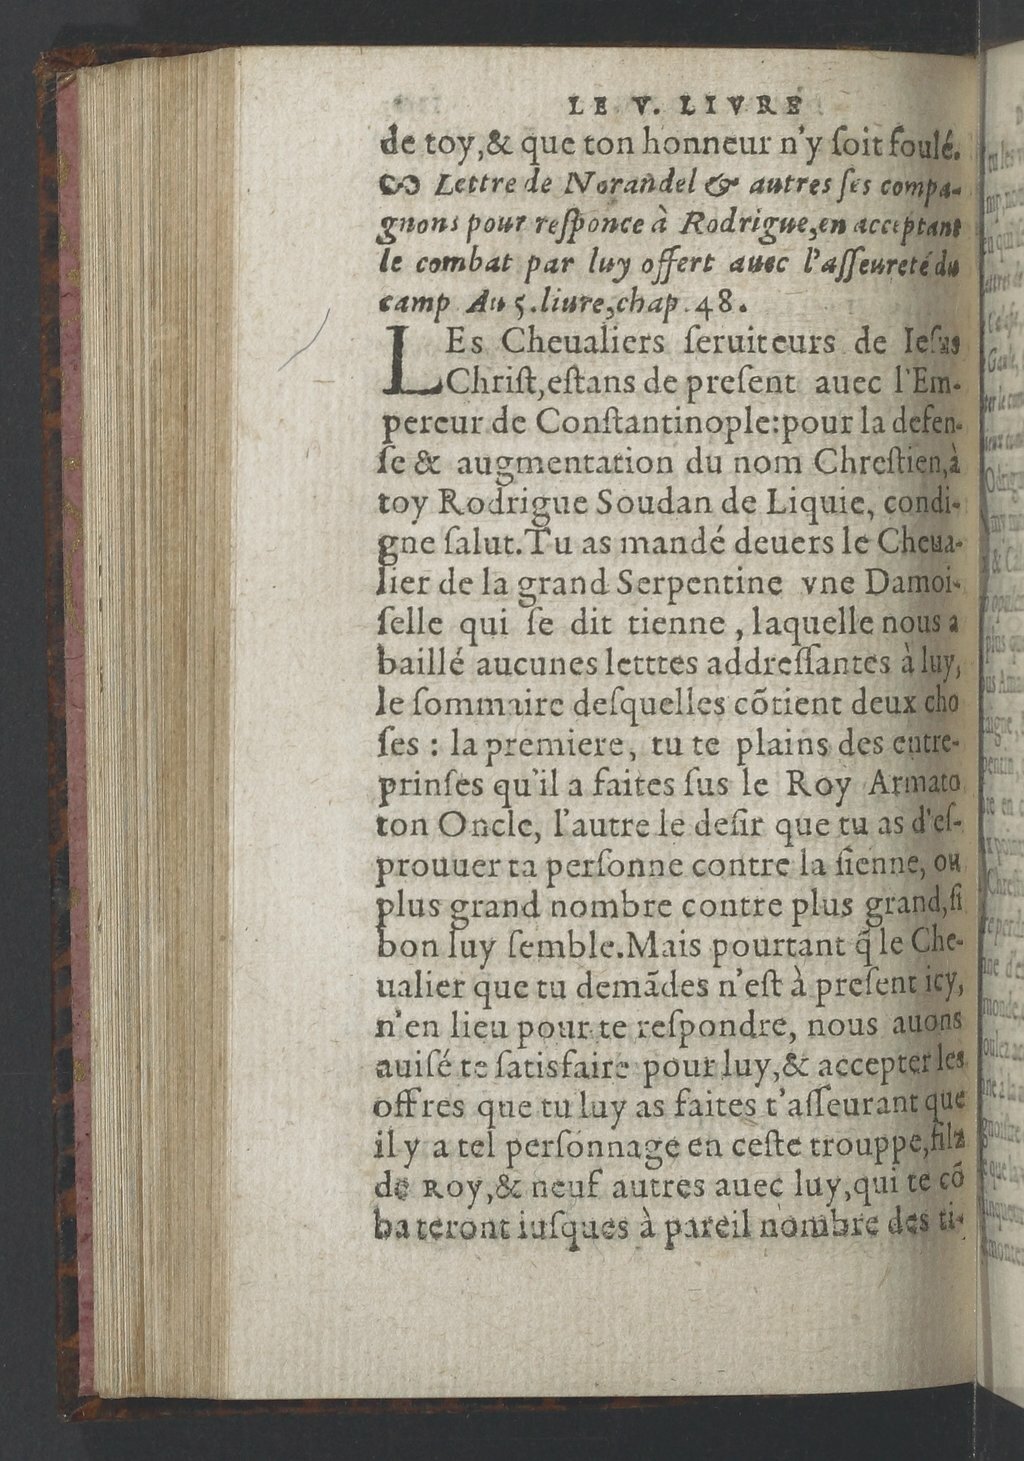 LE V. LIVRE
de toy,& que ton honneur n'y ſoit foulé.
Lettre de Norandel & autres ſes compa-
gnons pour reſponce à Rodrigue,en acceptant
le combat par luy offert auec l'aſſeureté du
camp Au 5.liure,chap.48.
LEs Cheualiers ſeruiteurs de Ieſus
Chriſt,eſtans de preſent auec l'Em-
pereur de Conſtantinople:pour la defen-
ſe & augmentation du nom Chreſtien,à
toy Rodrigue Soudan de Liquie, condi-
gne ſalut.Tu as mandé deuers le Cheua-
lier de la grand Serpentine vne Damoi-
ſelle qui ſe dit tienne , laquelle nous a
baillé aucunes letttes addreſſantes à luy,
le ſommaire deſquelles cõtient deux cho
ſes : la premiere, tu te plains des entre-
prinſes qu'il a faites ſus le Roy Armato
ton Oncle, l'autre le deſir que tu as d'eſ-
prouuer ta perſonne contre la ſienne, ou
plus grand nombre contre plus grand,ſi
bon luy ſemble.Mais pourtant q̃ le Che-
ualier que tu demãdes n'eſt à preſent icy,
n'en lieu pour te reſpondre, nous auons
auiſé te ſatisfaire pour luy,& accepter les
offres que tu luy as faites t'aſſeurant que
il y a tel perſonnage en ceſte trouppe,filz
de Roy,& neuf autres auec luy,qui te cõ
bateront iuſques à pareil nombre des ti-